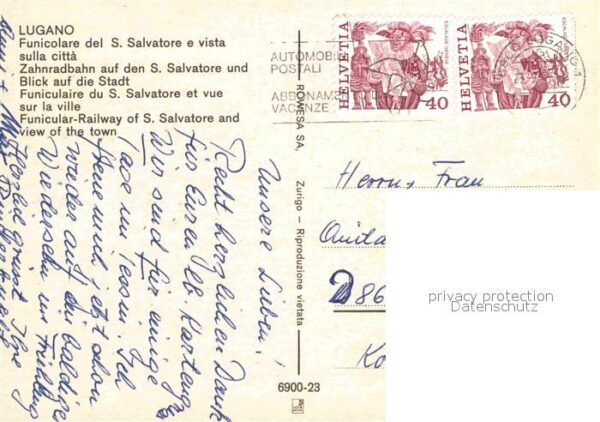 LUGANO
Funicolare del S. Salvatore e vista
sulla città
Zahnradbahn auf den S. Salvatore und
Blick auf die Stadt
Funiculaire du S. Salvatore et vue
sur la ville
Funiculár-Railway of S. Salvatore and
view of the town
AUTOMOBIL
POSTALI
ABBONAME
VACANZE
HELVETIA
40
ESCALADE GENÈVE
HELVETIA
40
ESCALADE GENÈVE
LUGANO 1
ROWESA SA, Zurigo - Riproduzione vietata
6900-23
Unsere Lieben!
Recht herzlichen Dank
für Euren lb. Kartengr
Wir sind für einige
Tage im Tessin. Ich
freue mich jetzt schon
wieder auf di baldige
Wiedersehn im Frühling
Herzlie grüsst Ihre
Herrn u. Frau
Anita
D 86
Ko
privacy protection
Datenschutz